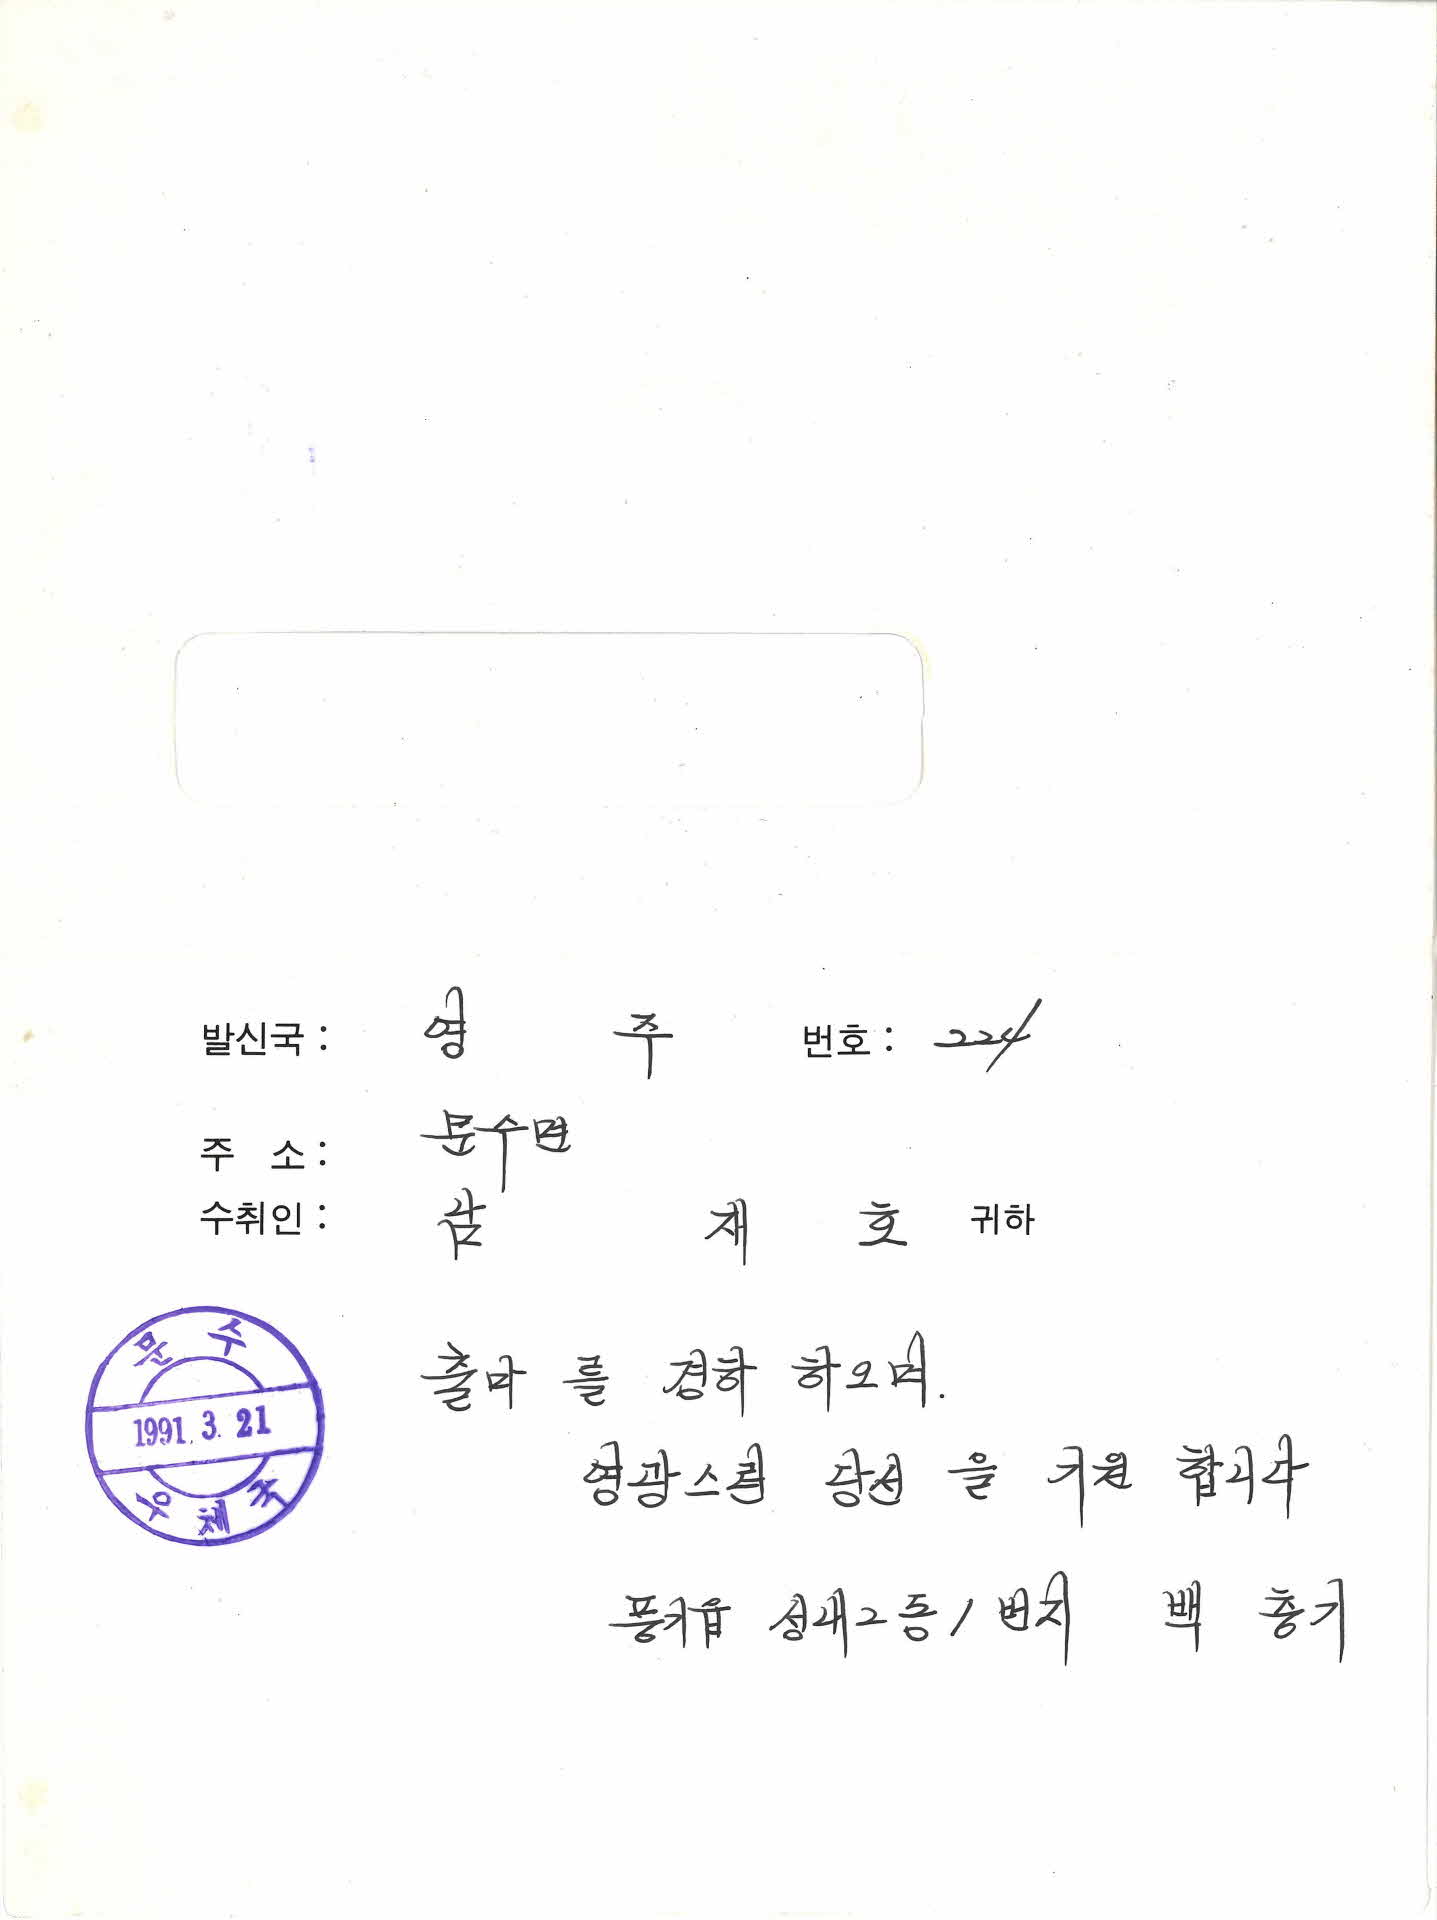 발신국 : 영 주 번호 : 224
주 소 : 문수면
수취인 : 남 재 호 귀하
문수
1991. 3. 21
우체국
출마 를 경하 하오며.
영광스런 당선 을 기원 합니다
풍기읍 성내2동 1번지 백 총기